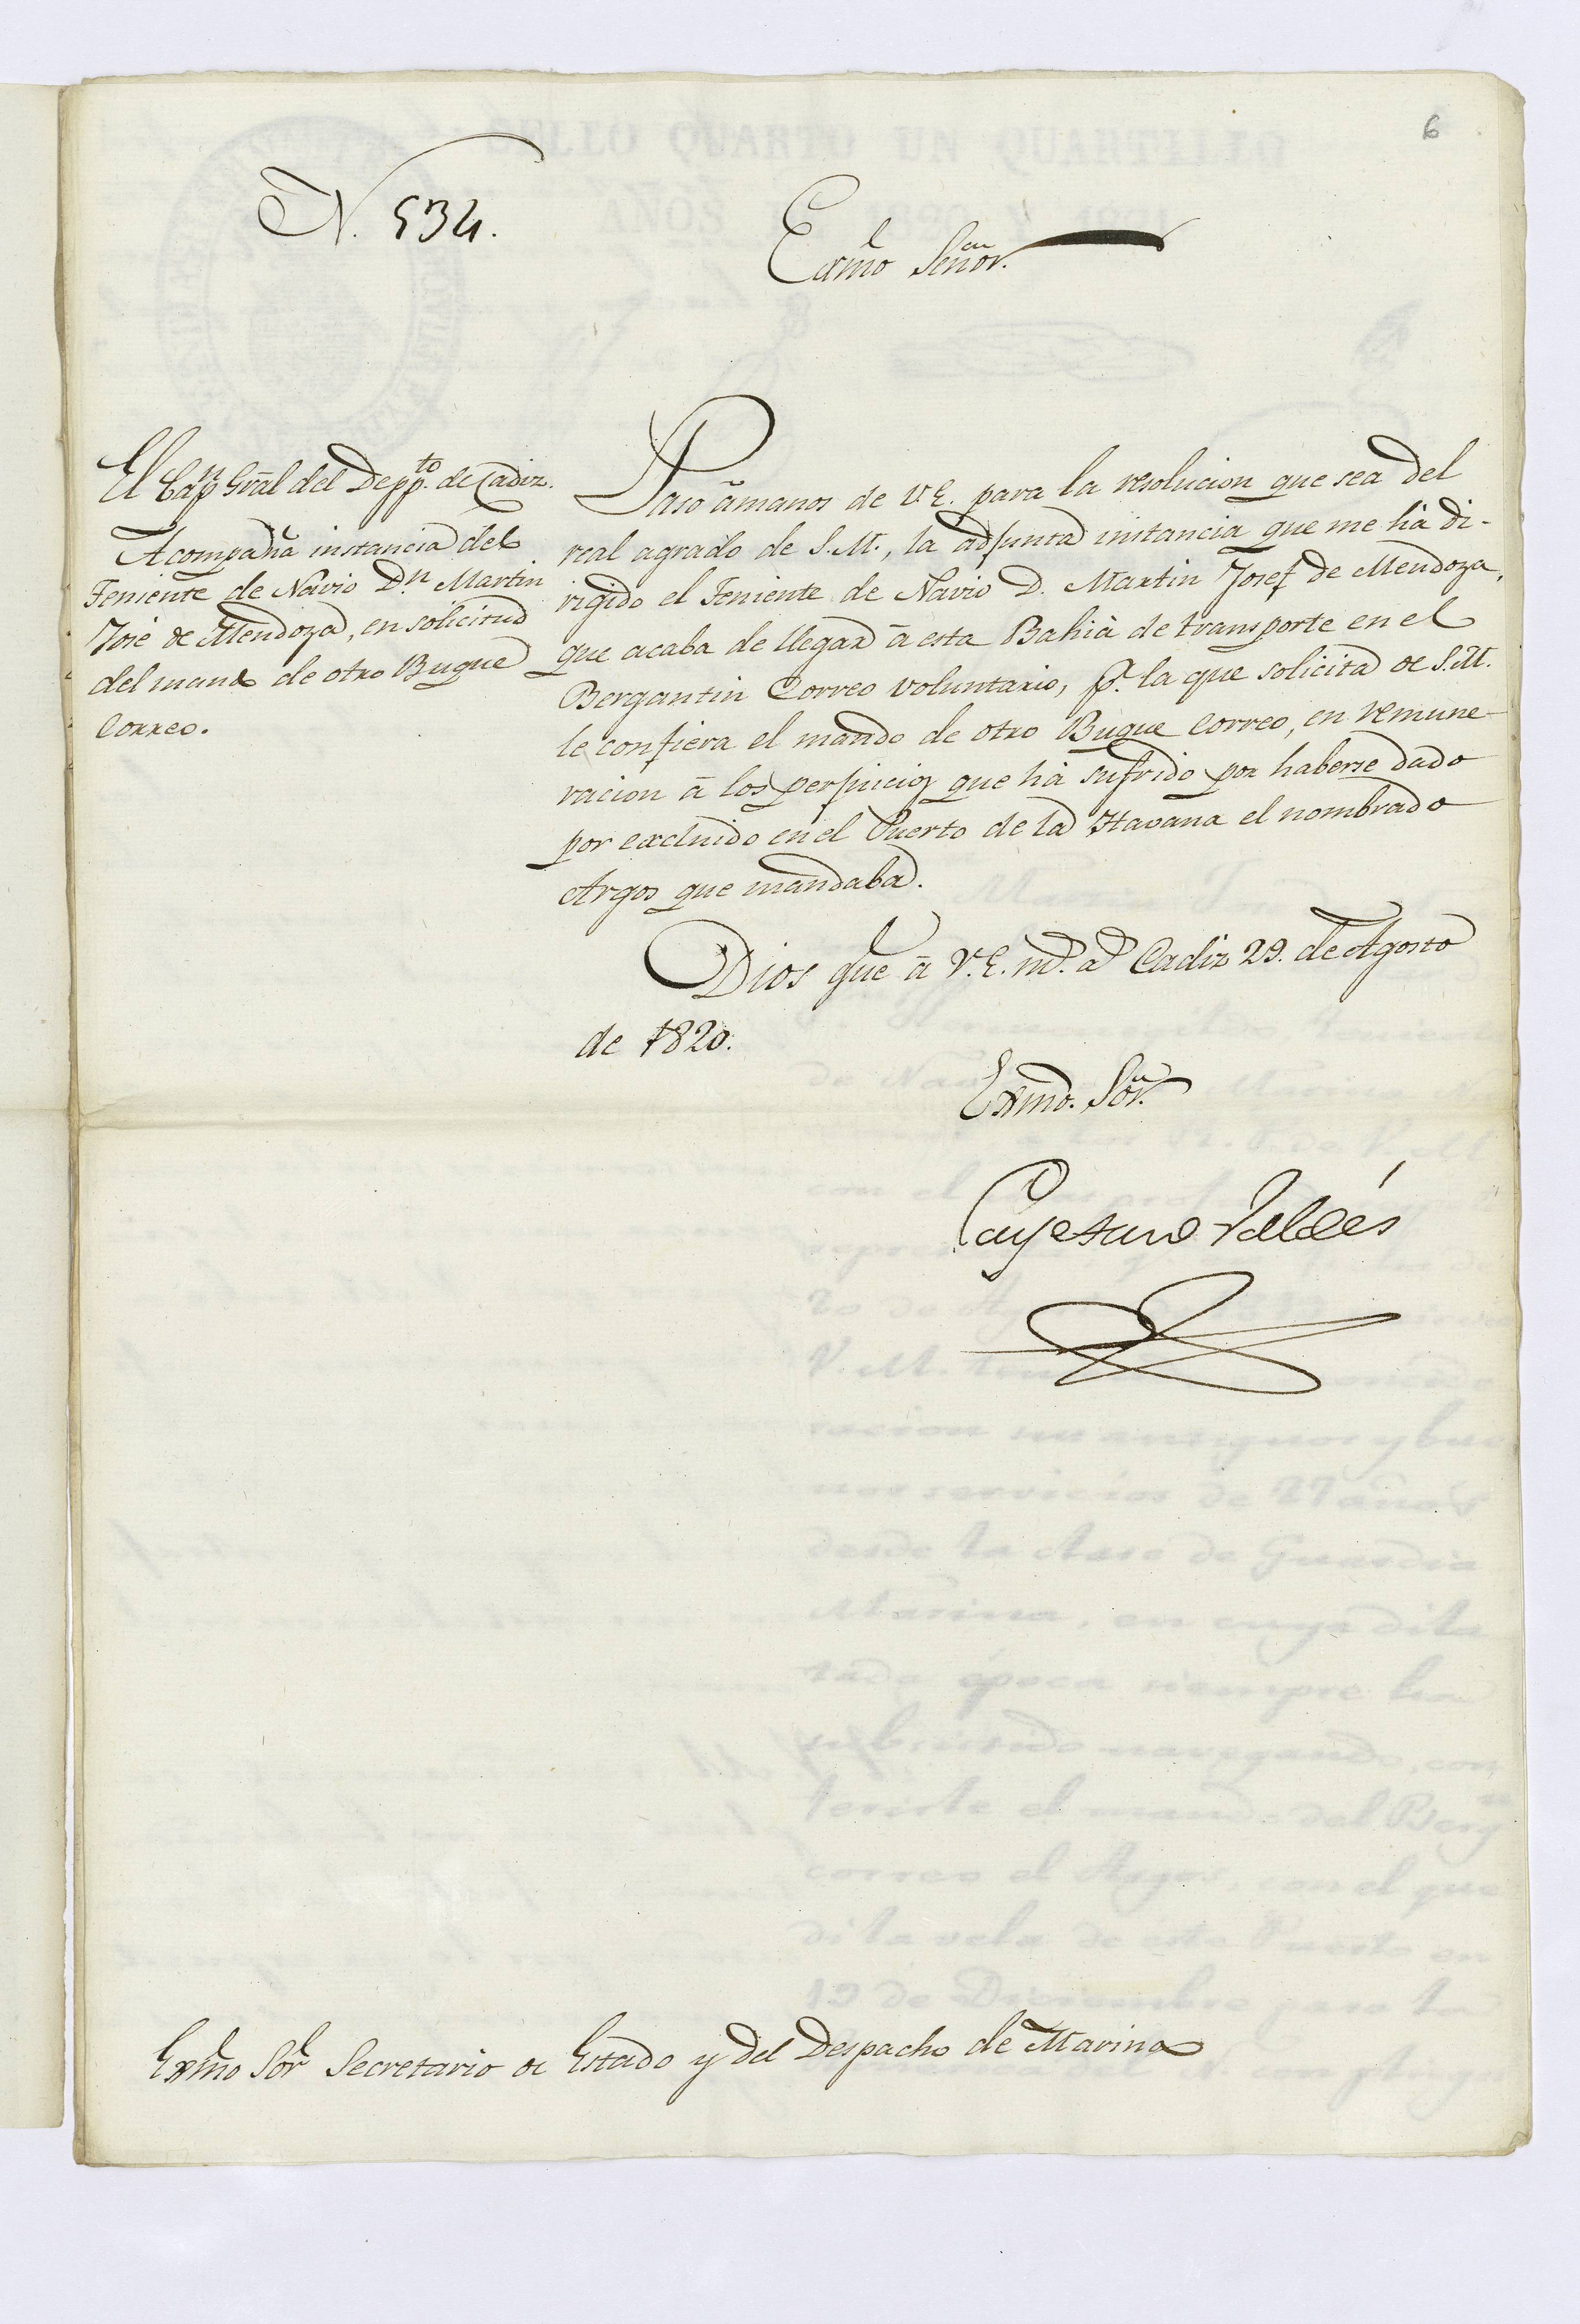 6
N. 534.
Exmo Señor.
El Capn Grâl del Deppto. de Cadiz.
Acompaña instancia del
Teniente de Navio Dn. Martin
José de Mendoza, en solicitud
del mando de otro Buque
Correo.
Paso â manos de V.E. para la resolucion que sea del
real agrado de S.M., la adjunta instancia que me hà di-
rigido el Teniente de Navio D. Martin Josef de Mendoza,
que acaba de llegar â esta Bahia de transporte en el
Bergantin Correo voluntario, pr. la que solicita de S.M.
le confiera el mando de otro Buque Correo, en remune-
racion â los perjuicios que hà sufrido por haberse dado
por excluido en el Puerto de la Havana el nombrado
Argos que mandaba.
Dios gûe â V.E. ms. as. Cadiz 29. de Agosto
de 1820.
Exmo. Sôr.
Cayetano Valdés
Exmo Sôr Secretario de Estado y del Despacho de Marina